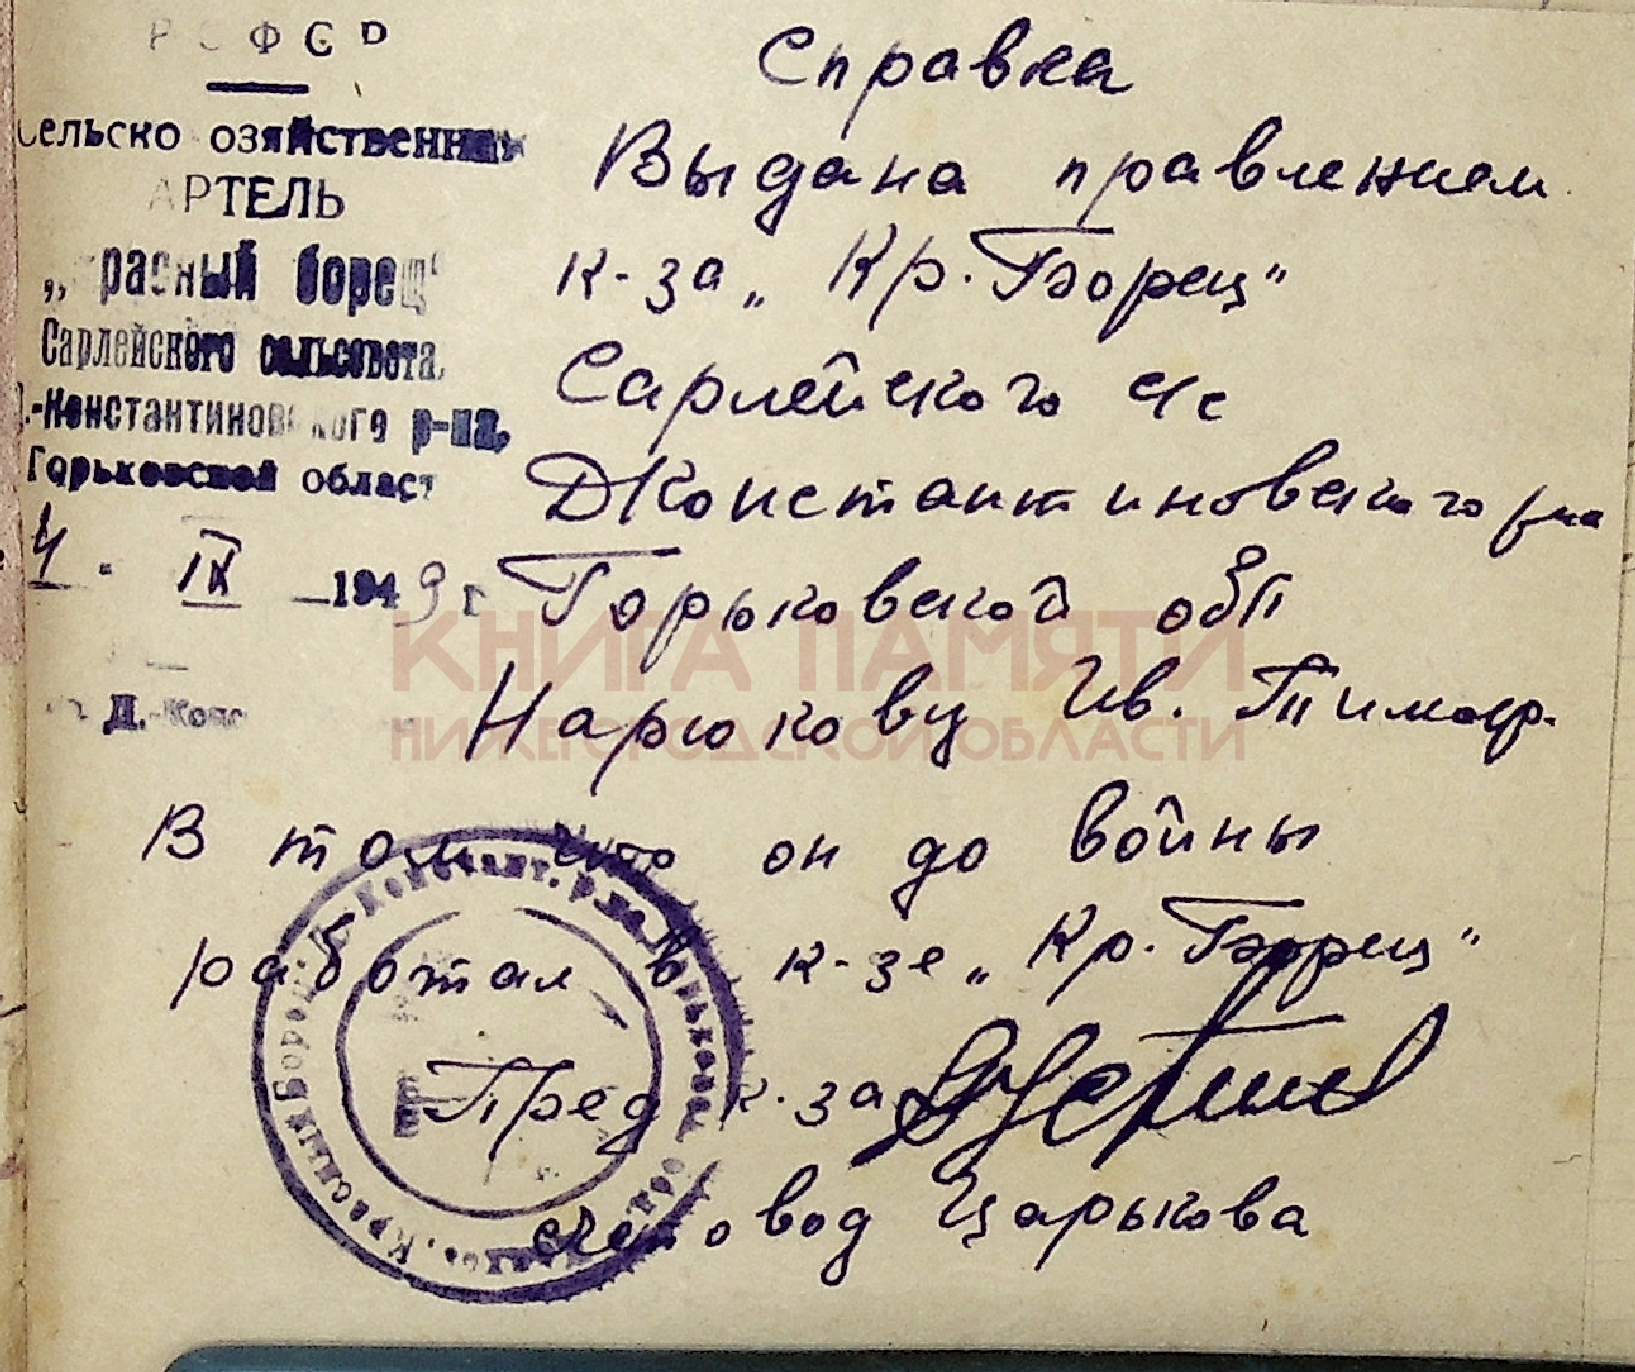 РСФСР
Сельскохозяйственная
АРТЕЛЬ
„Красный борец“
Сарлейского сельсовета,
Д.-Константиновского р-на,
Горьковской област
4. IX 1949 г
Д.-Конс
Справка
Выдана правлением
к-за „Кр. Борец"
Сарлейского с/с
ДКонстантиновского р-на
Горьковской обл
Нарюкову Ив. Тимоф.
В том что он до войны
работал в к-зе „Кр. Борец"
Пред к-за
Счетовод Царькова
Колхоз. Красный Борец Д. Констант. р-на Горьковской
КНИГА ПАМЯТИ
НИЖЕГОРОДСКОЙ ОБЛАСТИ